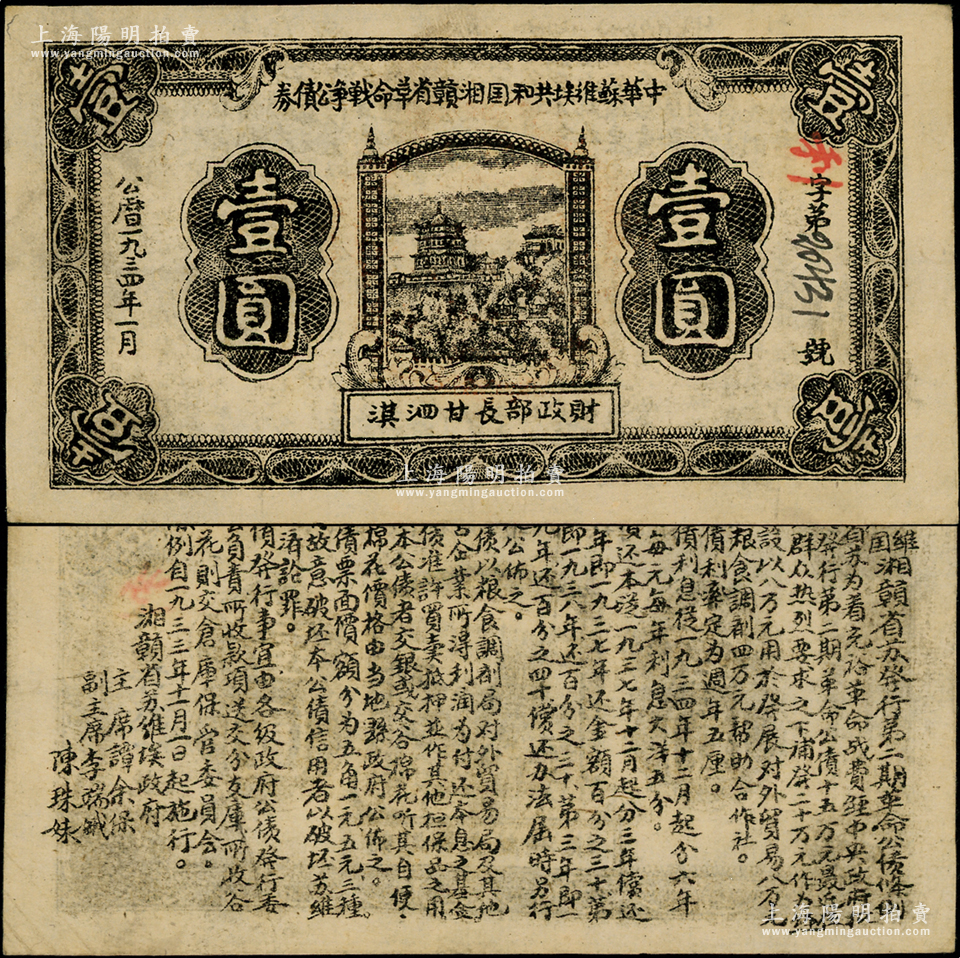 上海陽明拍賣
www.yangmingauction.com
中華蘇維埃共和囯湘贛省革命戰爭公債券
壹
壹
字第
號
壹圓
壹圓
公曆一九三四年一月
財政部長甘泗淇
壹
壹
上海陽明拍賣
www.yangmingauction.com
維
囯湘贛省苏發行第二期革命公債條例
省苏为着充裕革命战費經中央政府
發行第二期革命公債十五万元最近
群众热烈要求之下補發二十万元作为經
設以八万元用於發展对外貿易八万元
粮食調剤四万元帮助合作社。
債利率定为週年五厘。
債利息從一九三四年十二月起分六年
每元每年利息大洋五分。
債还本从一九三七年十二月起分三年償还
年即一九三七年还金額百分之三十第
即一九三八年还百分之三十、第三年即一
九年还百分之四十償还办法屆時另行
公佈之。
債以粮食調剤局对外貿易局及其他
企業所得利潤为付还本息之基金
債准許買卖抵押並作其他担保品之用
本公債者交銀或交谷棉花听其自便.
棉花價格由当地縣政府公佈之。
債票面價額分为五角一元五元三種
故意破坯本公債信用者以破坯苏維
濟訟罪。
債發行事宜由各級政府公債發行委
負責所收款項送交分支庫所收谷
花則交倉庫保管委員会。
例自一九三三年十一月一日起施行。
湘贛省苏維埃政府
主席譚余保
副主席李端娥
陳珠妹
上海陽明拍賣
www.yangmingauction.com